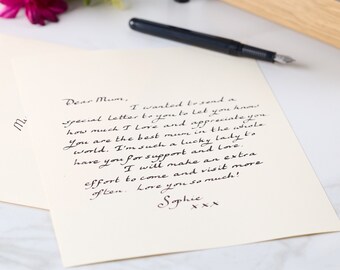 Dear Mum,
I wanted to send a
special letter to you to let you know
how much I love and appreciate you.
You are the best mum in the whole
world. I'm such a lucky lady to
have you for support and love.
I will make an extra
effort to come and visit more
often. Love you so much!
Sophie
xxx
m.